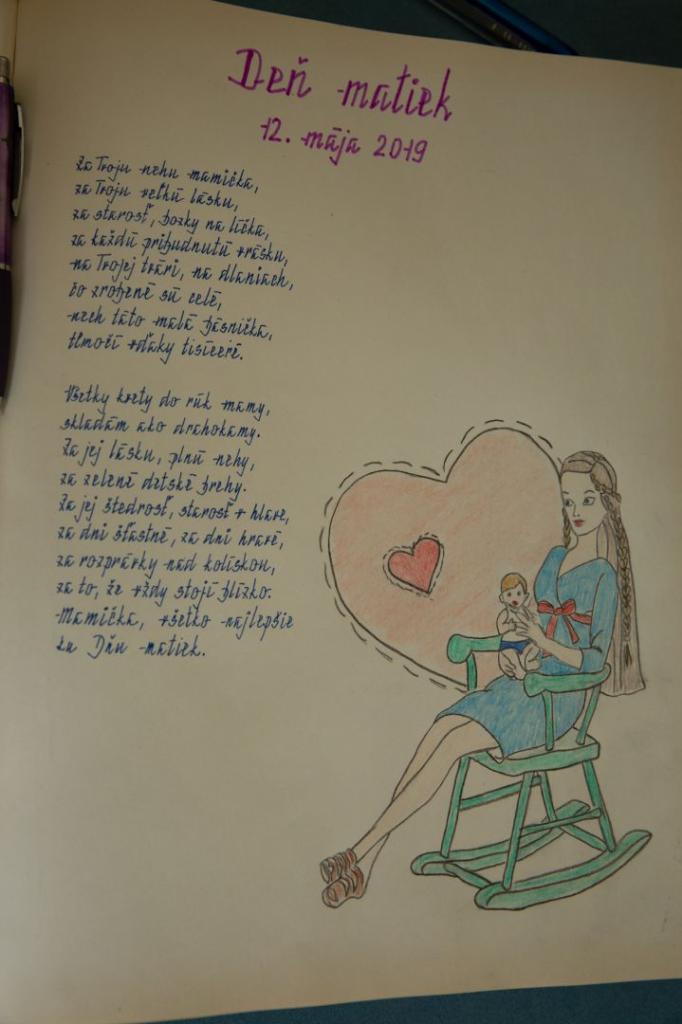 Deň matiek
12. mája 2019
Za Tvoju nehu mamička,
za Tvoju veľkú lásku,
za starosť, bozky na líčka,
za každú pribudnutú vrásku,
na Tvojej tvári, na dlaniach,
čo zrobené sú celé,
nech táto malá básnička,
tlmočí vďaky tisíceré.
Všetky kvety do rúk mamy,
skladám ako drahokamy.
Za jej lásku, plnú nehy,
za zelené detské brehy.
Za jej štedrosť, starosť v hlave,
za dni šťastné, za dni hravé,
za rozprávky nad kolískou,
za to, že vždy stojí blízko.
Mamička, všetko najlepšie
ku Dňu matiek.